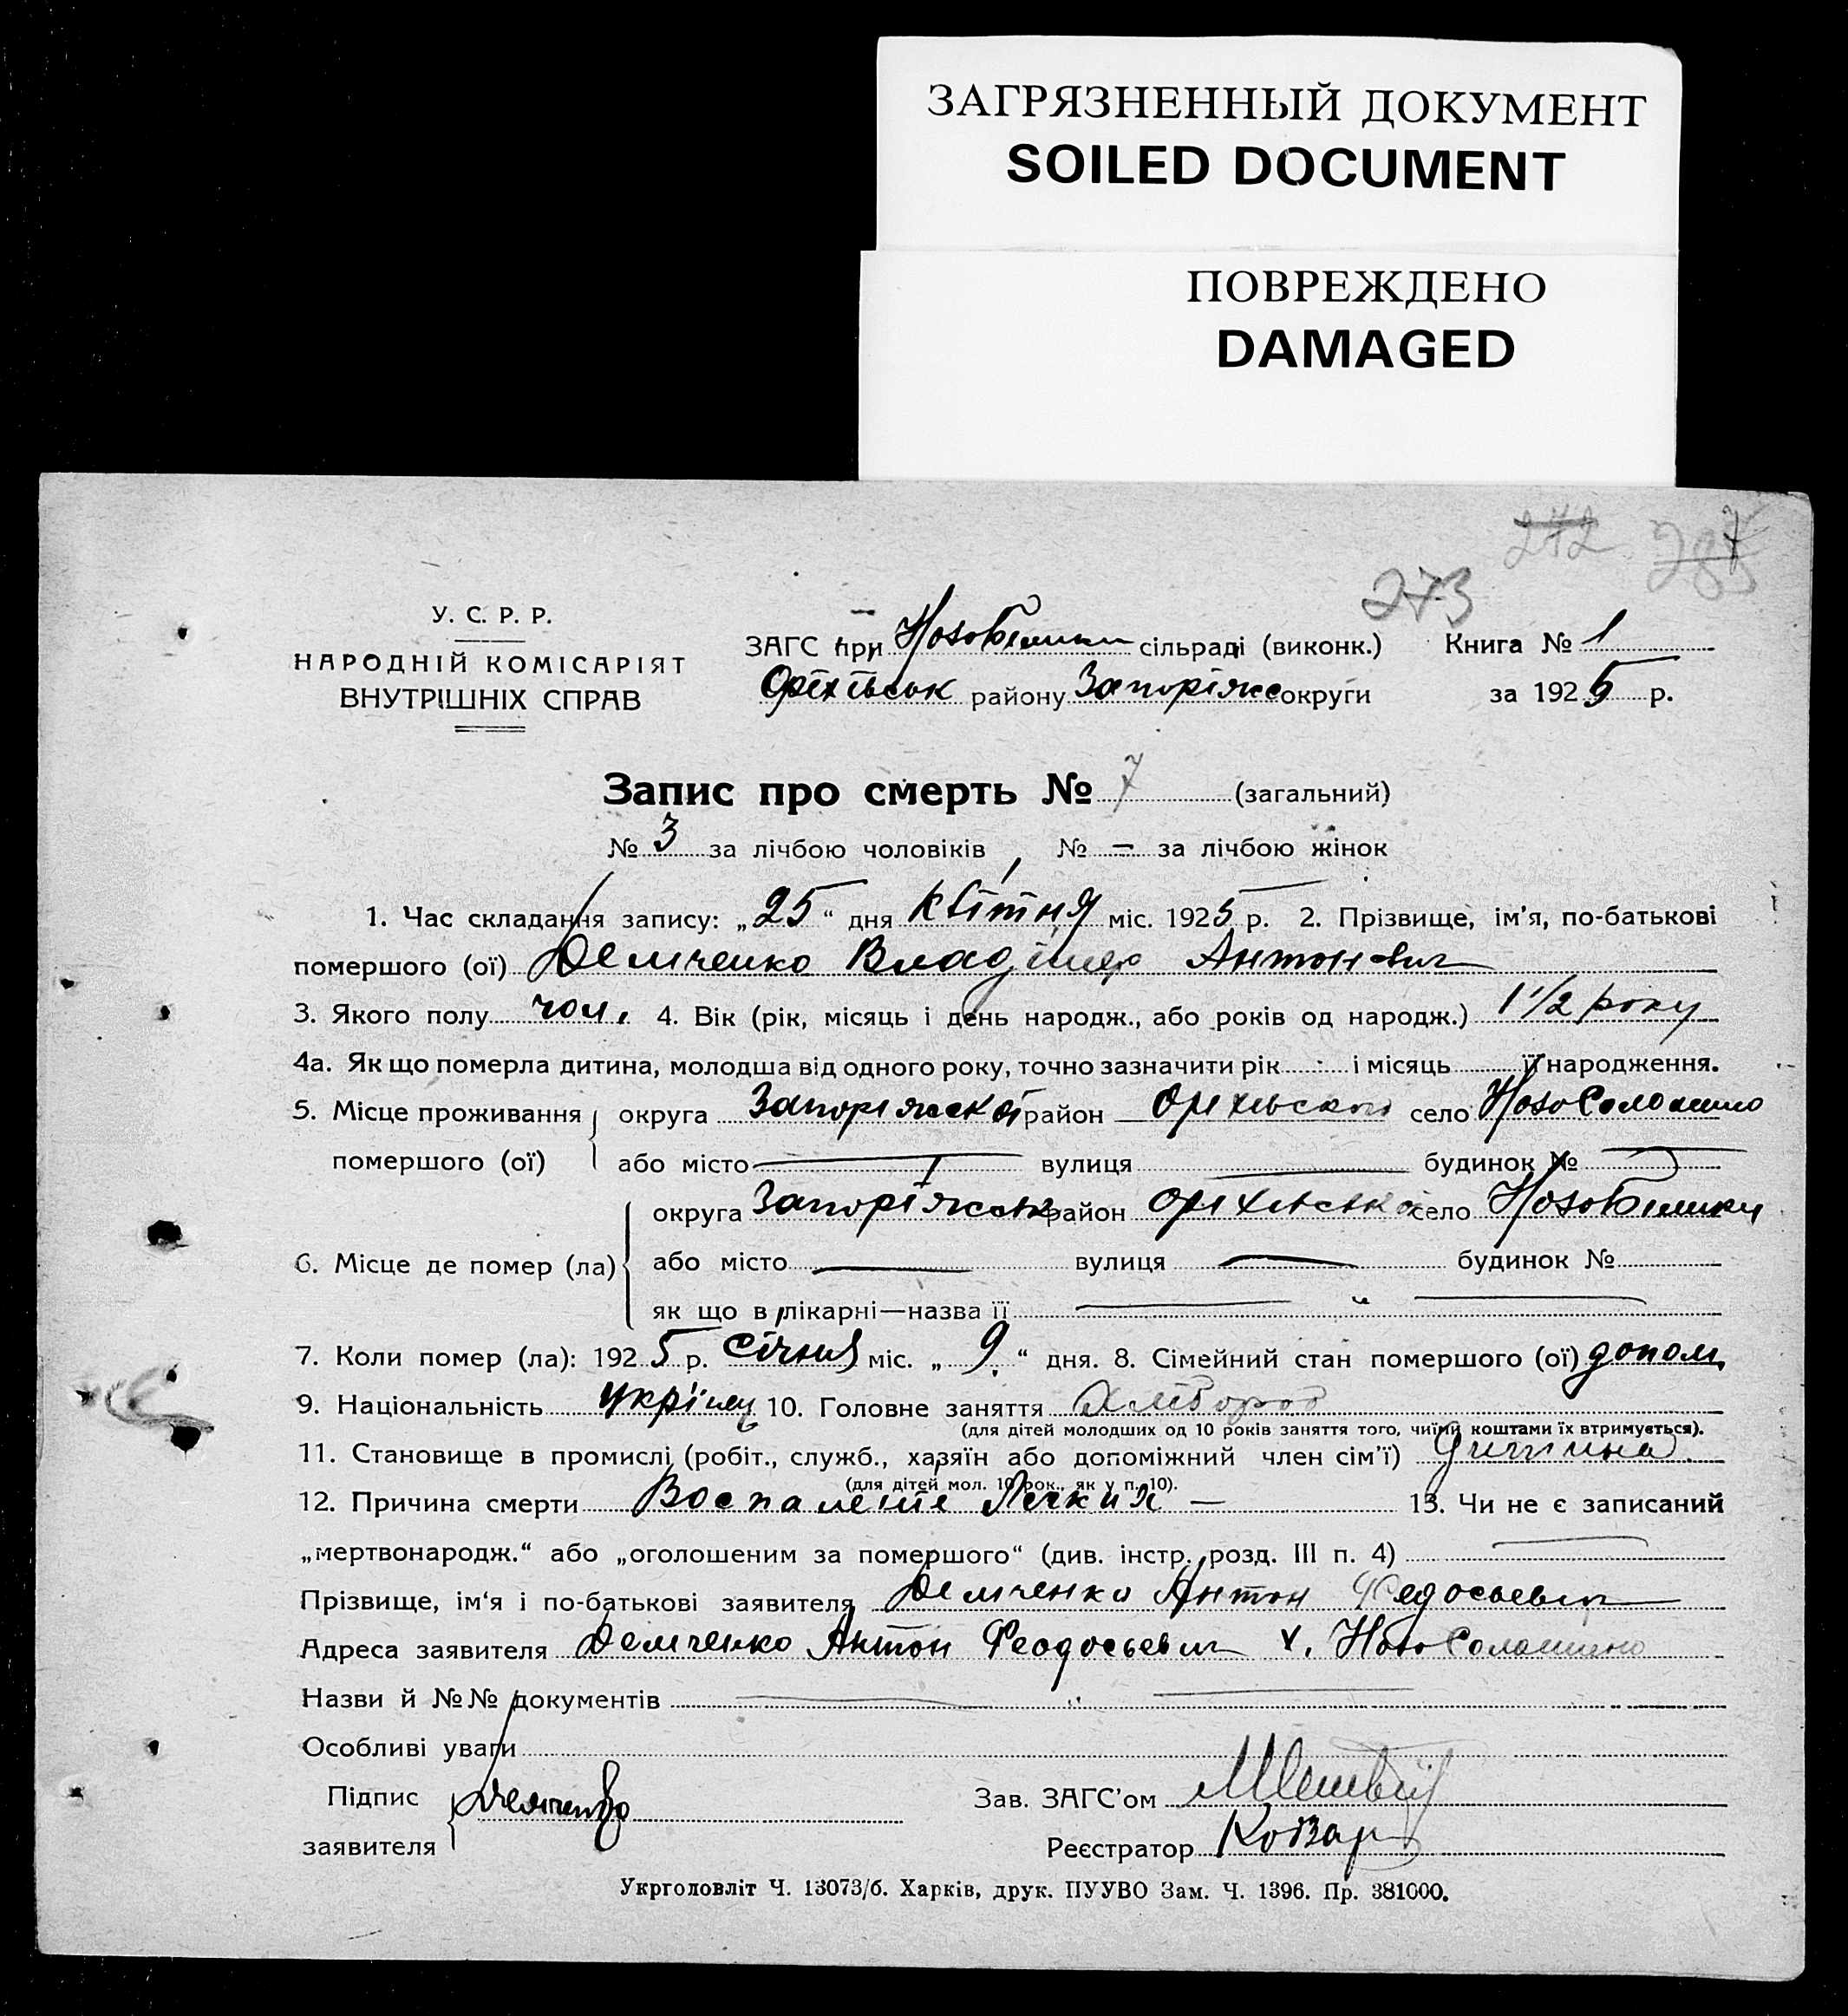 ЗАГРЯЗНЕННЫЙ ДОКУМЕНТ
SOILED DOCUMENT
ПОВРЕЖДЕНО
DAMAGED
272 285 7
273
У. С. Р. Р.
НАРОДНІЙ КОМІСАРІЯТ
ВНУТРІШНІХ СПРАВ
ЗАГС при сільраді (виконк.) Книга № 1
Оріхівськ району Запоріжс округи за 1925 р.
Запис про смерть № 7 (загальний)
№ 3 за лічбою чоловіків № — за лічбою жінок
1. Час складання запису: „25“ дня квітня міс. 1925 р. 2. Прізвище, ім'я, по-батькові
помершого (ої) Демченко Владімер Антонович
3. Якого полу чол. 4. Вік (рік, місяць і день народж., або років од народж.) 1 1/2 року
4а. Як що померла дитина, молодша від одного року, точно зазначити рік і місяць її народження.
5. Місце проживання округа Запоріжської район Оріхівського село НовоСолошино
помершого (ої) або місто — вулиця — будинок № —
6. Місце де помер (ла) округа Запоріжськ район Оріхівсько село
або місто — вулиця — будинок №
як що в лікарні—назва її — „ —
7. Коли помер (ла): 1925 р. Січня міс. „9“ дня. 8. Сімейний стан помершого (ої) допом.
9. Національність Україн 10. Головне заняття Хлібороб
(для дітей молодших од 10 років заняття того, чиїми коштами їх втримується).
11. Становище в промислі (робіт., служб., хазяїн або допоміжний член сім'ї) Дитина
(для дітей мол. 10 рок., як у п. 10).
12. Причина смерти Воспаленіе Легких — 13. Чи не є записаний
„мертвонародж.“ або „оголошеним за помершого“ (див. інстр. розд. III п. 4) —
Прізвище, ім'я і по-батькові заявителя Демченко Антон Федосьевич
Адреса заявителя Демченко Антон Феодосьевич х. НовоСолошино
Назви й №№ документів — „ —
Особливі уваги
Підпис заявителя Демченко
Зав. ЗАГС'ом
Реєстратор Кобзар
Укрголовліт Ч. 13073/б. Харків, друк. ПУУВО Зам. Ч. 1396. Пр. 381000.